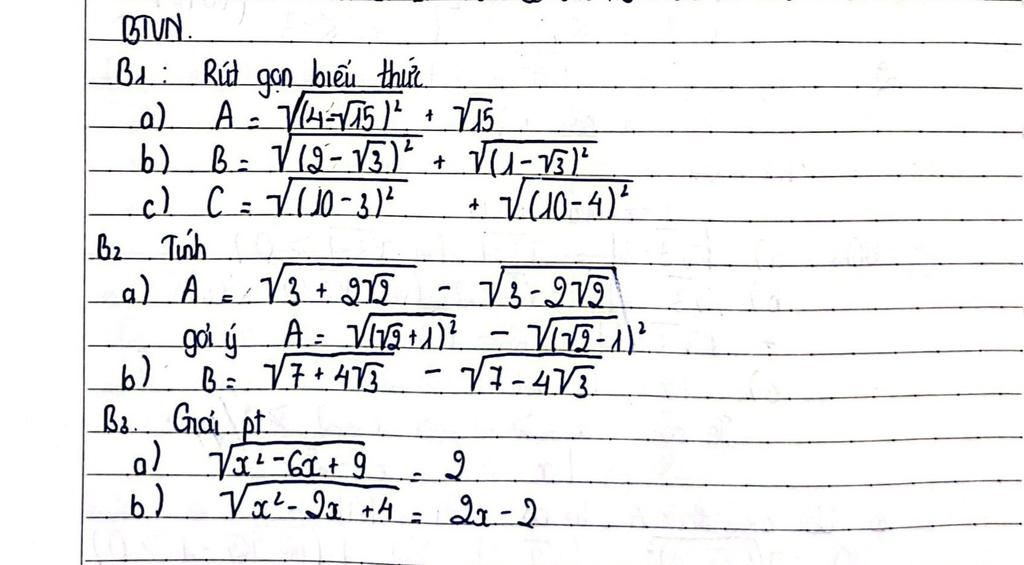 BTVN.
B1: Rút gọn biểu thức
a) A = √(4-√15)² + √15
b) B = √(2-√3)² + √(1-√3)²
c) C = √(10-3)² + √(10-4)²
B2 Tính
a) A = √3+2√2 - √3-2√2
gợi ý A = √(√2+1)² - √(√2-1)²
b) B = √7+4√3 - √7-4√3
B3. Giải pt
a) √x²-6x+9 = 2
b) √x²-2x+4 = 2x-2